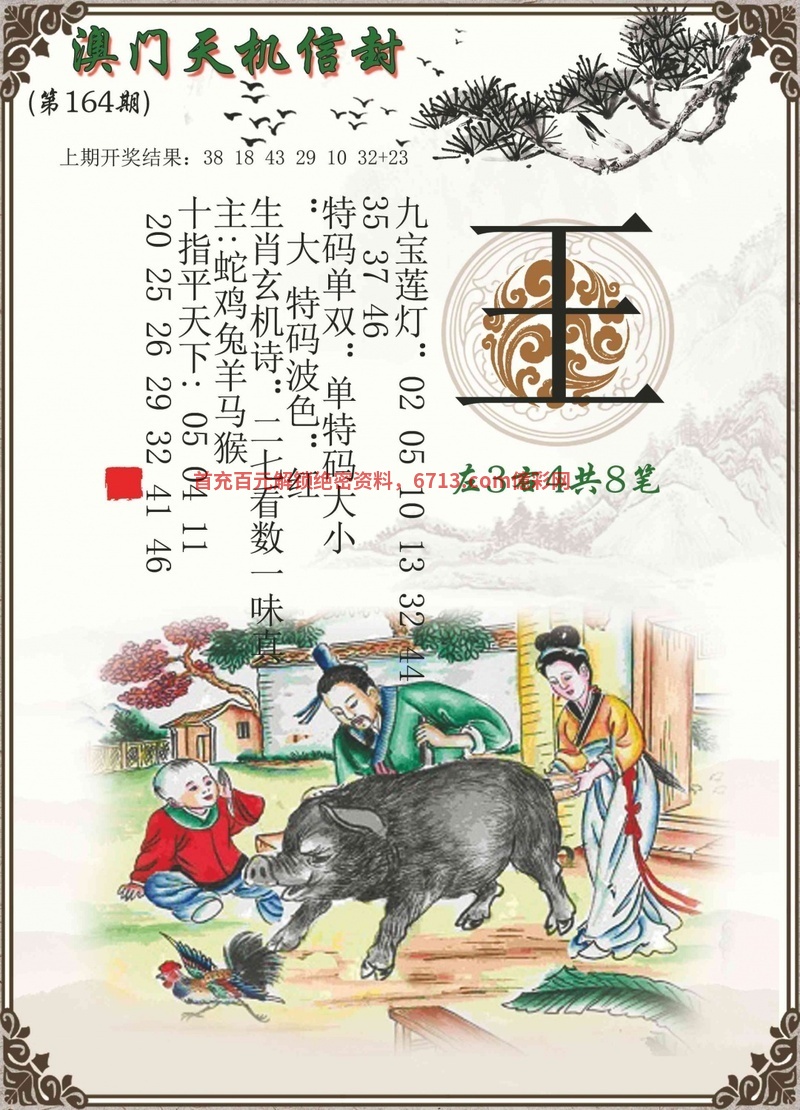 澳门天机信封
(第164期)
上期开奖结果：38 18 43 29 10 32+23
九宝莲灯：02 05 10 13 32 44
35 37 46
特码单双：单特码大小
：大 特码波色：红
生肖玄机诗：二七看数一味真
主：蛇鸡兔羊马猴
十指平天下：05 04 11
20 25 26 29 32 41 46
王
左3右4共8笔
首充百元解锁绝密资料，6713.com信彩网